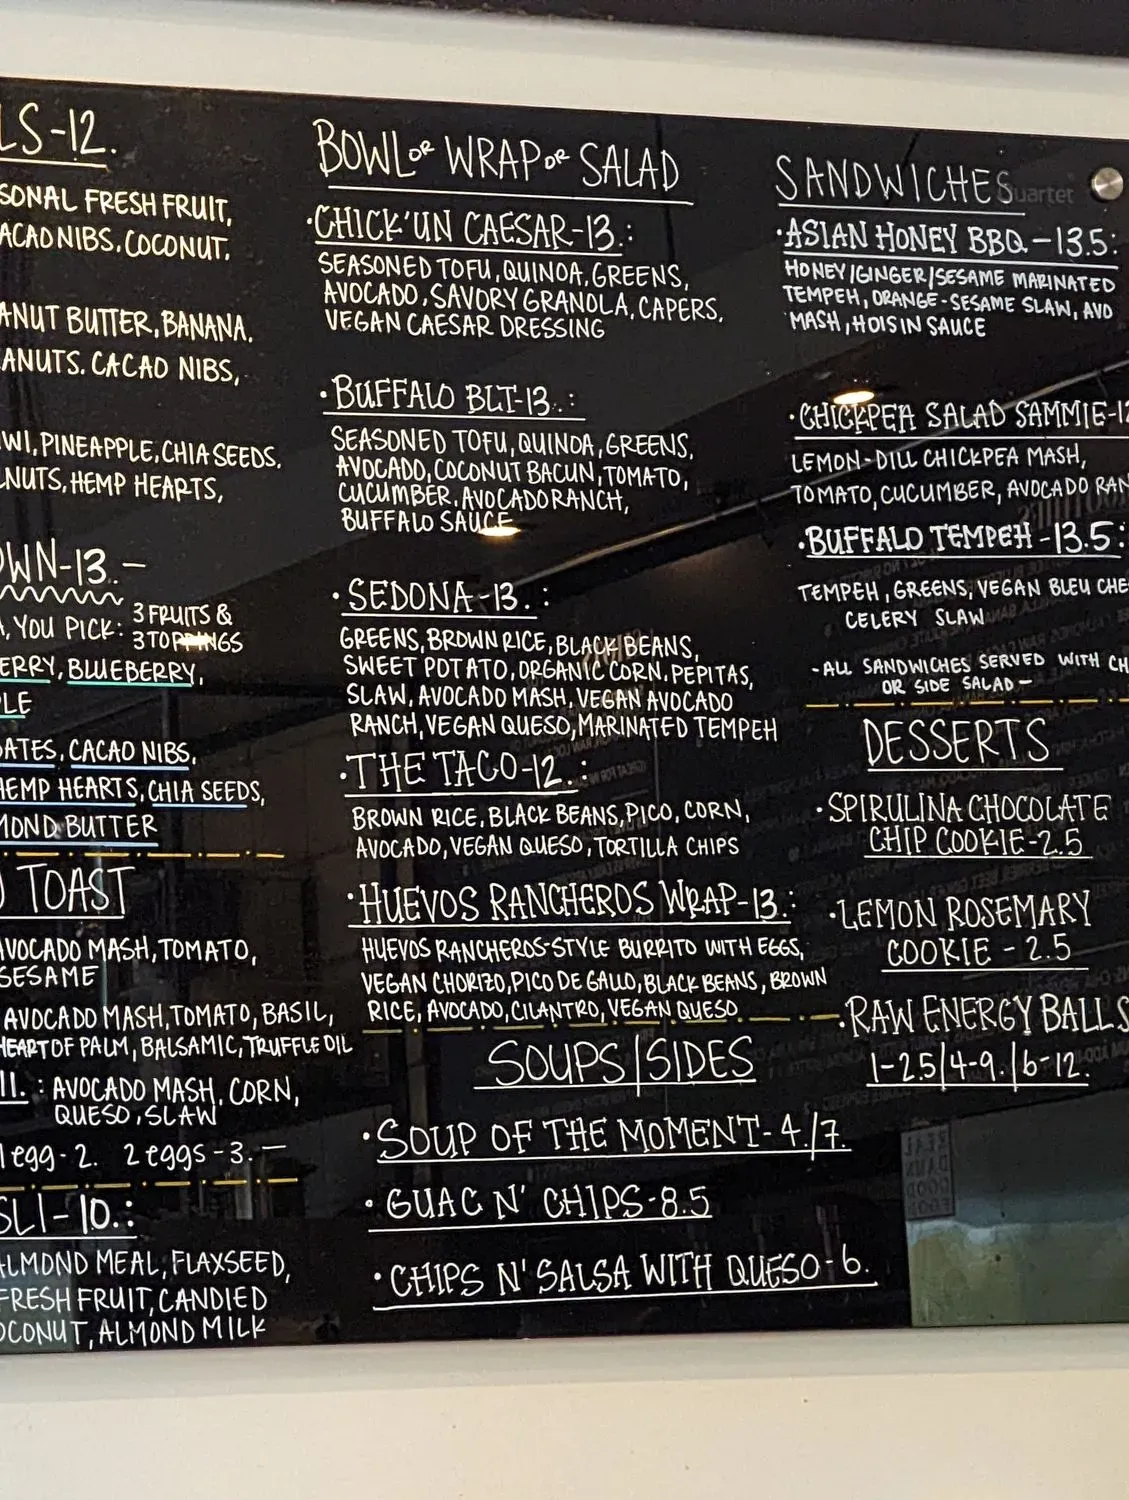 LS-12.
SONAL FRESH FRUIT,
ACAO NIBS, COCONUT.
ANUT BUTTER, BANANA,
ANUTS. CACAO NIBS,
WI, PINEAPPLE, CHIA SEEDS.
NUTS, HEMP HEARTS,
WN-13.-
, YOU PICK: 3 FRUITS &
3 TOPPINGS
ERRY, BLUEBERRY,
PLE
DATES, CACAO NIBS,
HEMP HEARTS, CHIA SEEDS,
MOND BUTTER
TOAST
AVOCADO MASH, TOMATO,
SESAME
AVOCADO MASH, TOMATO, BASIL,
HEART OF PALM, BALSAMIC, TRUFFLE OIL
11.: AVOCADO MASH, CORN,
QUESO, SLAW
1 egg-2. 2 eggs-3.-
SLI-10.:
ALMOND MEAL, FLAXSEED,
FRESH FRUIT, CANDIED
OCONUT, ALMOND MILK
BOWL OR WRAP OR SALAD
·CHICK'UN CAESAR-13.:
SEASONED TOFU, QUINOA, GREENS,
AVOCADO, SAVORY GRANOLA, CAPERS,
VEGAN CAESAR DRESSING
·BUFFALO BLT-13.:
SEASONED TOFU, QUINOA, GREENS,
AVOCADO, COCONUT BACUN, TOMATO,
CUCUMBER, AVOCADO RANCH,
BUFFALO SAUCE
·SEDONA-13.:
GREENS, BROWN RICE, BLACK BEANS,
SWEET POTATO, ORGANIC CORN, PEPITAS,
SLAW, AVOCADO MASH, VEGAN AVOCADO
RANCH, VEGAN QUESO, MARINATED TEMPEH
·THE TACO-12.:
BROWN RICE, BLACK BEANS, PICO, CORN,
AVOCADO, VEGAN QUESO, TORTILLA CHIPS
·HUEVOS RANCHEROS WRAP-13.:
HUEVOS RANCHEROS-STYLE BURRITO WITH EGGS,
VEGAN CHORIZO, PICO DE GALLO, BLACK BEANS, BROWN
RICE, AVOCADO, CILANTRO, VEGAN QUESO
SOUPS/SIDES
·SOUP OF THE MOMENT-4./7.
·GUAC N' CHIPS-8.5
·CHIPS N' SALSA WITH QUESO-6.
SANDWICHES
Quartet
·ASIAN HONEY BBQ-13.5:
HONEY/GINGER/SESAME MARINATED
TEMPEH, ORANGE-SESAME SLAW, AVO
MASH, HOISIN SAUCE
·CHICKPEA SALAD SAMMIE-1
LEMON-DILL CHICKPEA MASH,
TOMATO, CUCUMBER, AVOCADO RAN
·BUFFALO TEMPEH-13.5:
TEMPEH, GREENS, VEGAN BLEU CHE
CELERY SLAW
-ALL SANDWICHES SERVED WITH CH
OR SIDE SALAD-
DESSERTS
·SPIRULINA CHOCOLATE
CHIP COOKIE-2.5
·LEMON ROSEMARY
COOKIE-2.5
·RAW ENERGY BALLS
1-2.5/4-9./6-12.